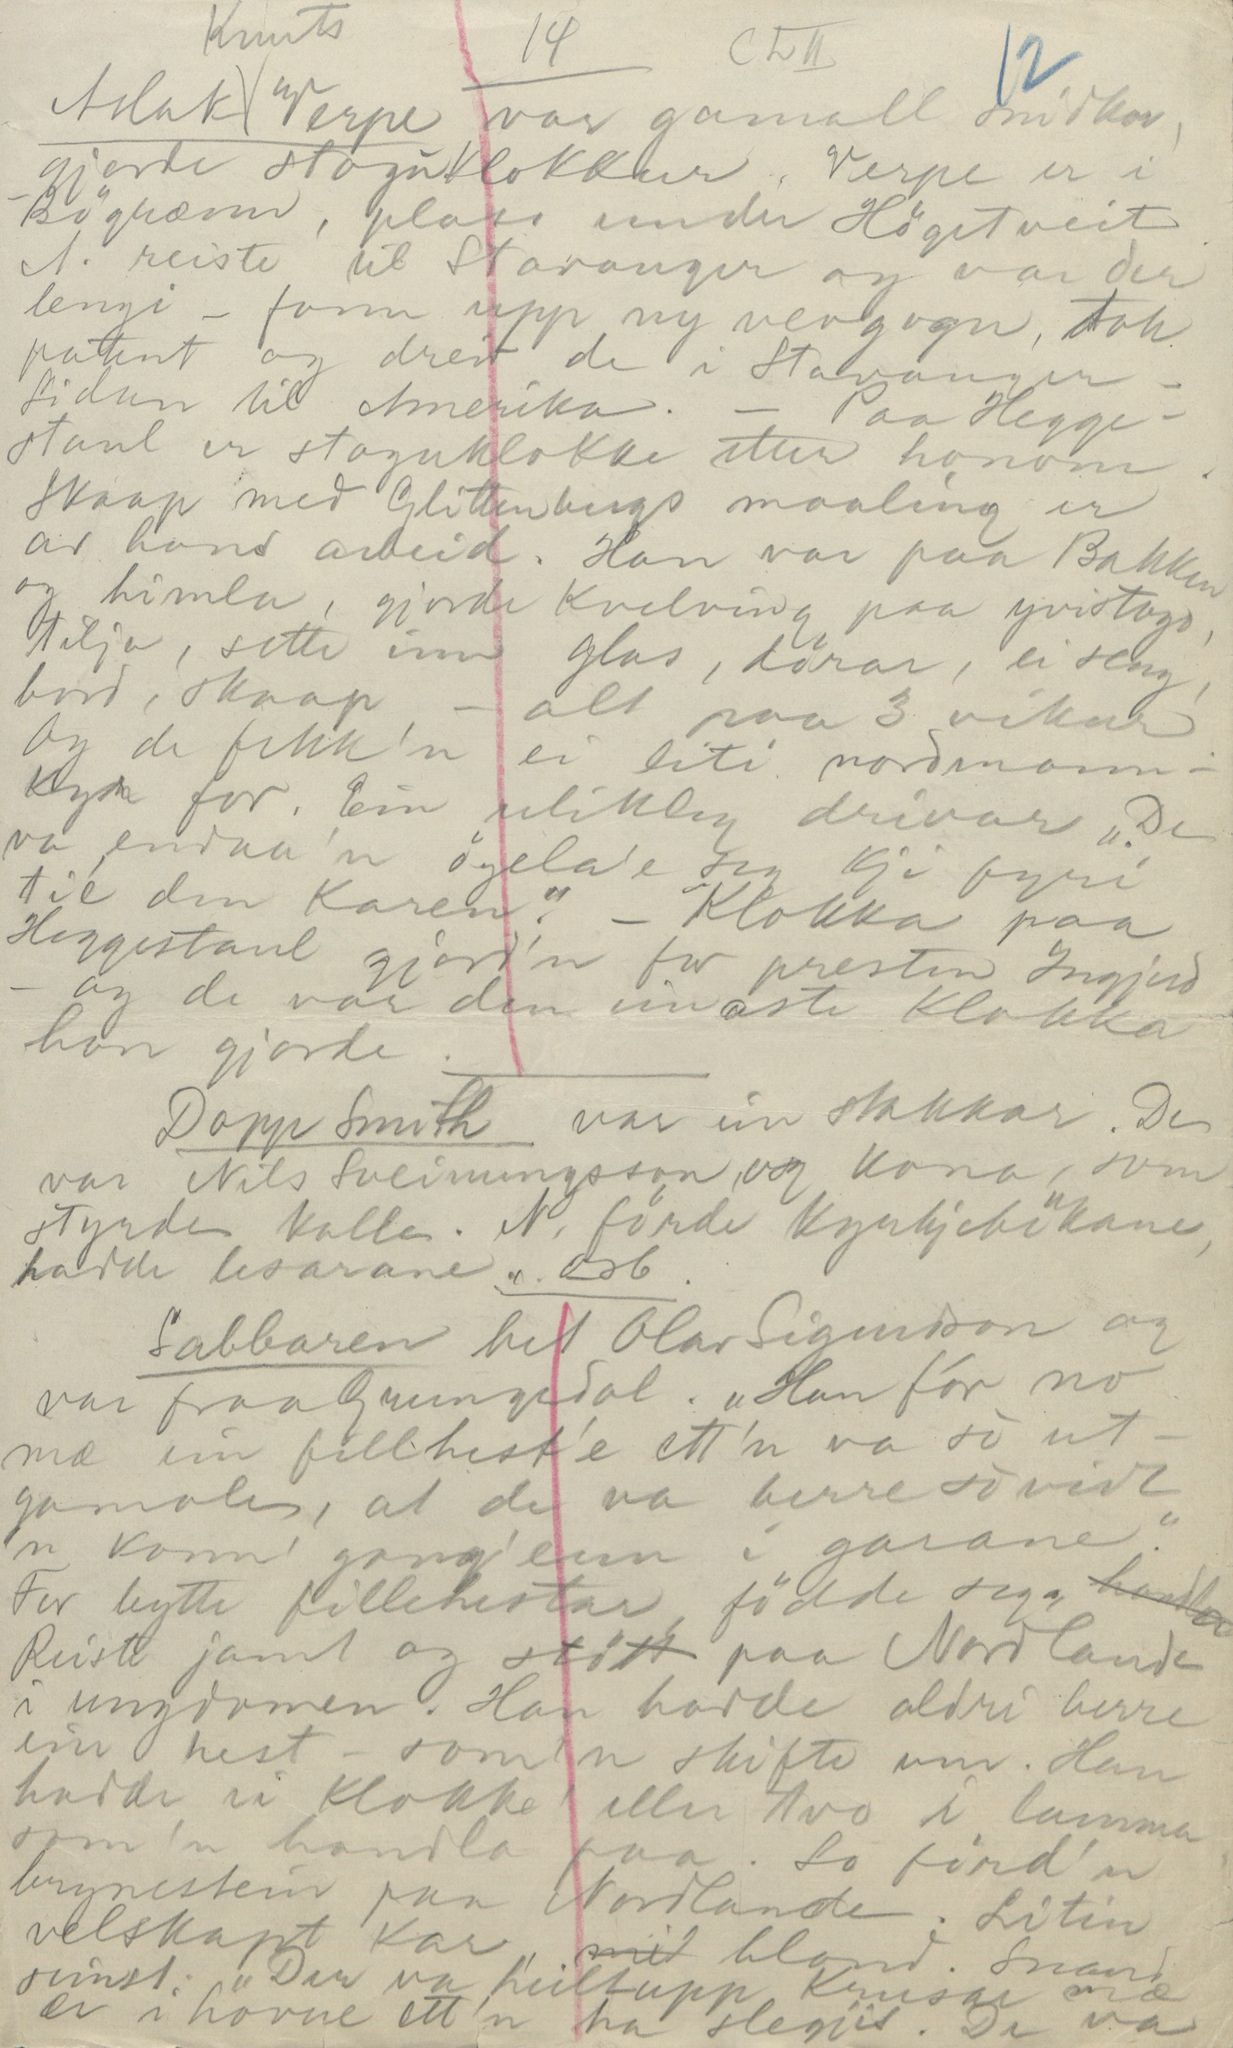 Knuts 14 CLII 12
Aslak Verpe var gamall snidkar,
gjorde stoguklokkur. Verpe er i
Bögrænn, plass under Högetveit.
A. reiste til Stavanger og var der
lengi - fann upp ny vevgogn, tok
patent og dreiv de i Stavanger -
Sidan til Amerika. - Paa Hegge-
staul er stoguklokke etter honom.
Skaap med Glittenbergs maaling er
av hans arbeid. Han var paa Bakken
og himla, gjorde kvelving paa yvistogo,
tilja, sette inn glas, dörar, ei seng,
bord, skaap - alt paa 3 vikur
Og de fekk'n ei liti nordmann-
kyr for. Ein ulikleg drivar "De
va endaa'n öyela'e seg kji fyri
til den karen." - Klokka paa
Heggestaul gjord'n for presten Ingjerd
- og de var den einaste klokka
han gjorde.
Dopp Smith var ein stakkar. De
var Nils Sveinungsson og kona, som
styrde kalle. N. förde kyrkjebökane,
hadde lesarane
Sabbaren het Olav Sigurdson og
var fraa Grungedal. "Han for no
mæ ein fillhest'e ett'n va so ut-
gamale, at de va berre sovidt
'n kann' gang'enn i garane."
For bytte fillehestar, födde seg,
Reiste jamt og stött paa Nordlande
i ungdomen. Han hadde aldri berre
ein hest - som'n skifte um. Han
hadde ei klokke eller tvo i lumma
som'n handla paa. So förd'n
brynestein paa Nordlande. Litin
velskapt kar, blond. Snard
seinst: "Der va heiltupp krusar mæ
er i hovue ett'n ha slegjis. De va